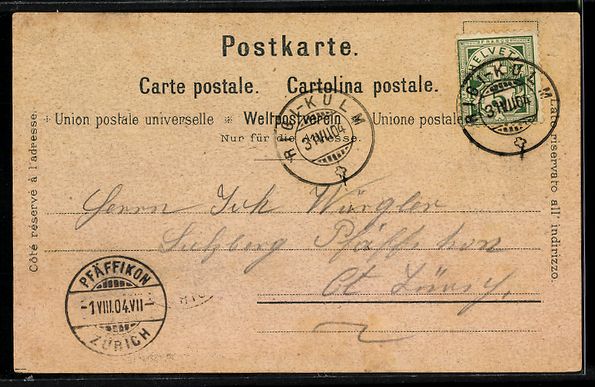 Postkarte.
Carte postale. Cartolina postale.
Union postale universelle * Weltpostverein * Unione postale
Nur für die Adresse.
Côté réservé à l'adresse.
Lato riservato all' indirizzo.
HELVETIA
RIGI-KULM
31 VII 04
RIGI-KULM
31 VII 04
Herrn Jak Würgler
Sulzberg Pfäffikon
Ct Zürich
PFÄFFIKON
-1 VIII.04.VII-
ZÜRICH